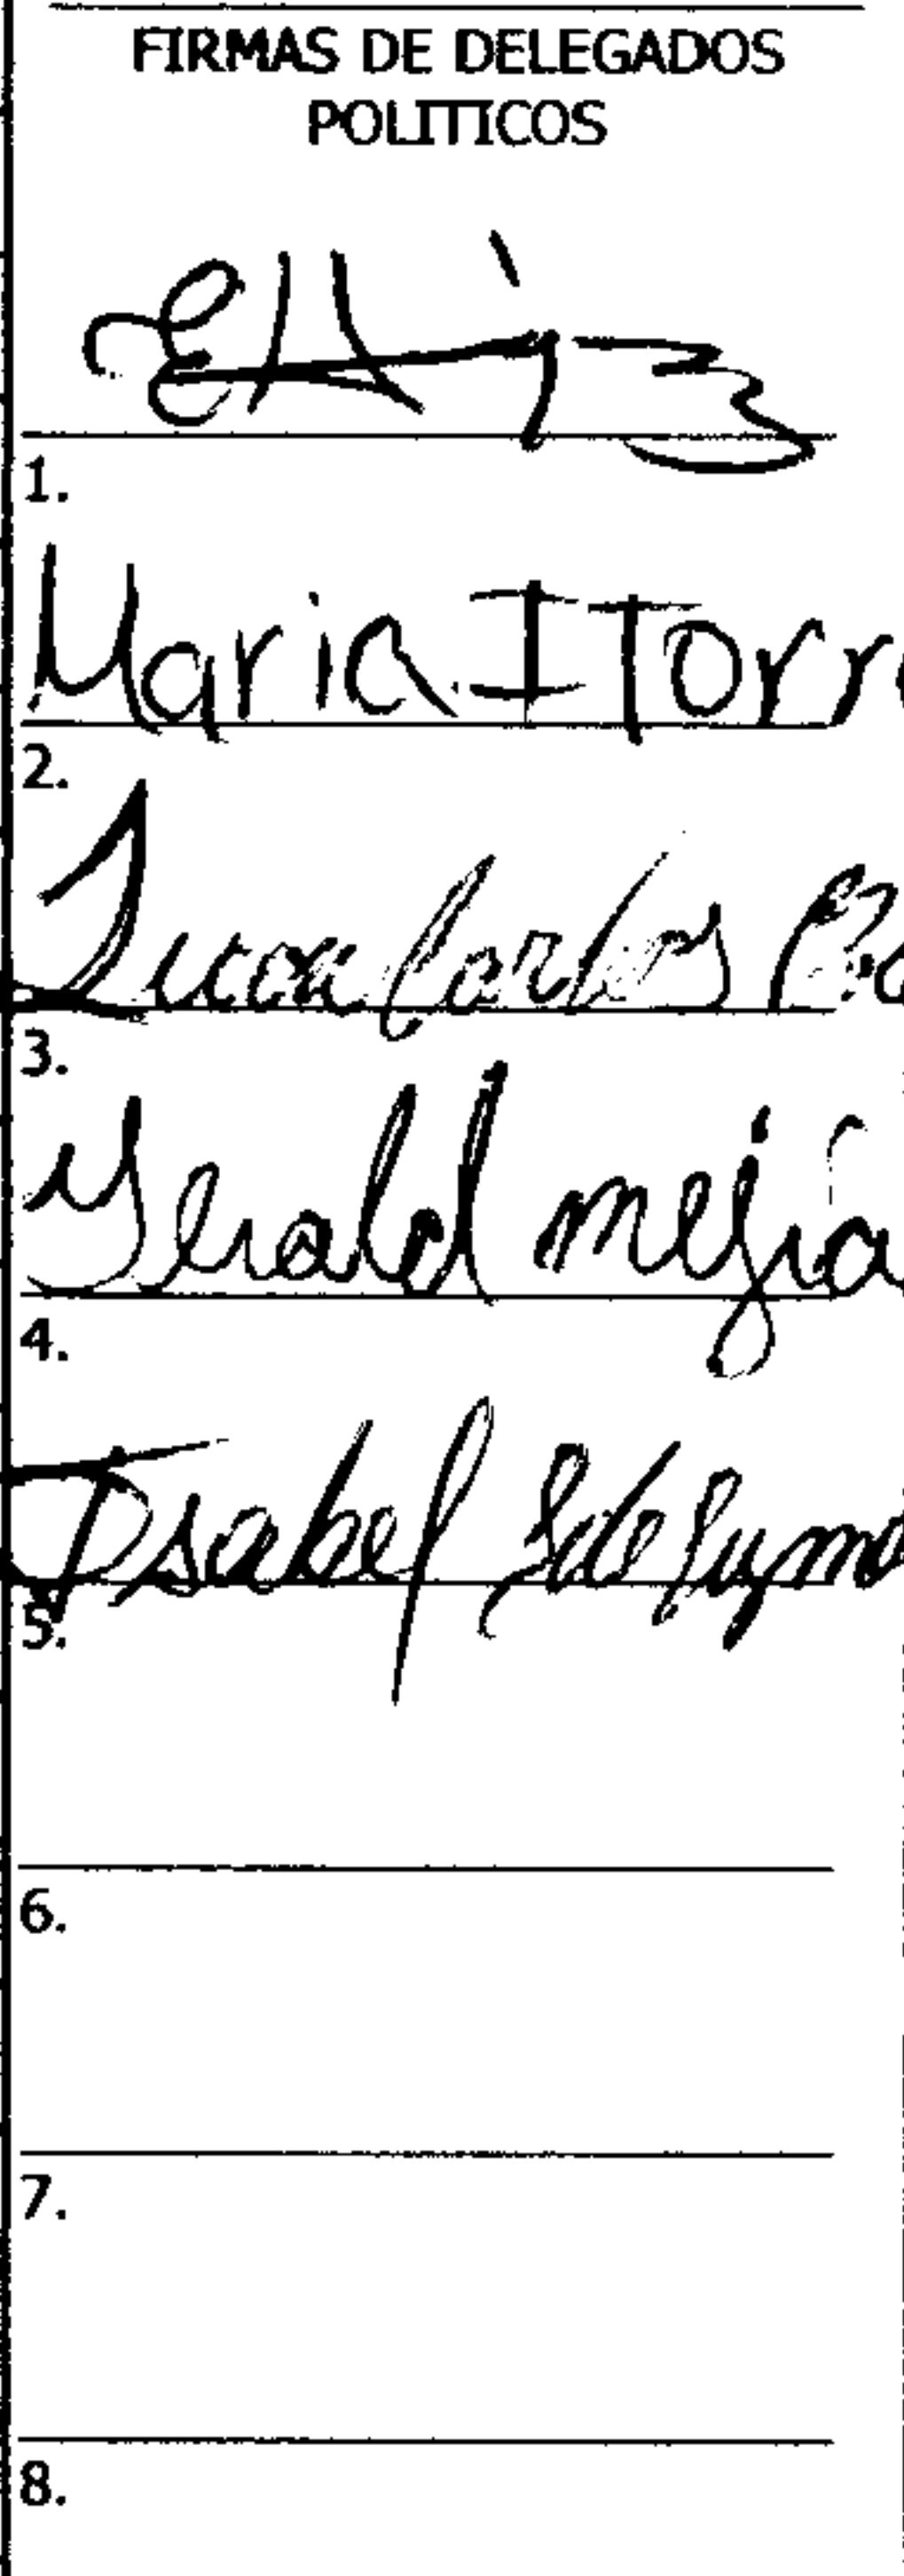 FIRMAS DE DELEGADOS
POLITICOS
1.
Maria I Torr
2.
Juan Carlos
3.
Yerald mejia
4.
Isabel
5.
6.
7.
8.